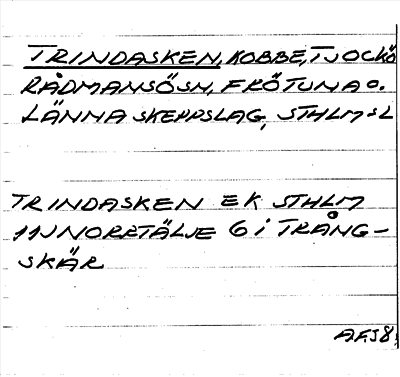 TRINDASKEN, KOBBE, TJOCKÖ
RÅDMANSÖSN, FRÖTUNA O.
LÄNNA SKEPPSLAG, STHLM:SL
TRINDASKEN EK STHLM
11J NORRTÄLJE 6 i TRÅNG-
SKÄR
AFS8